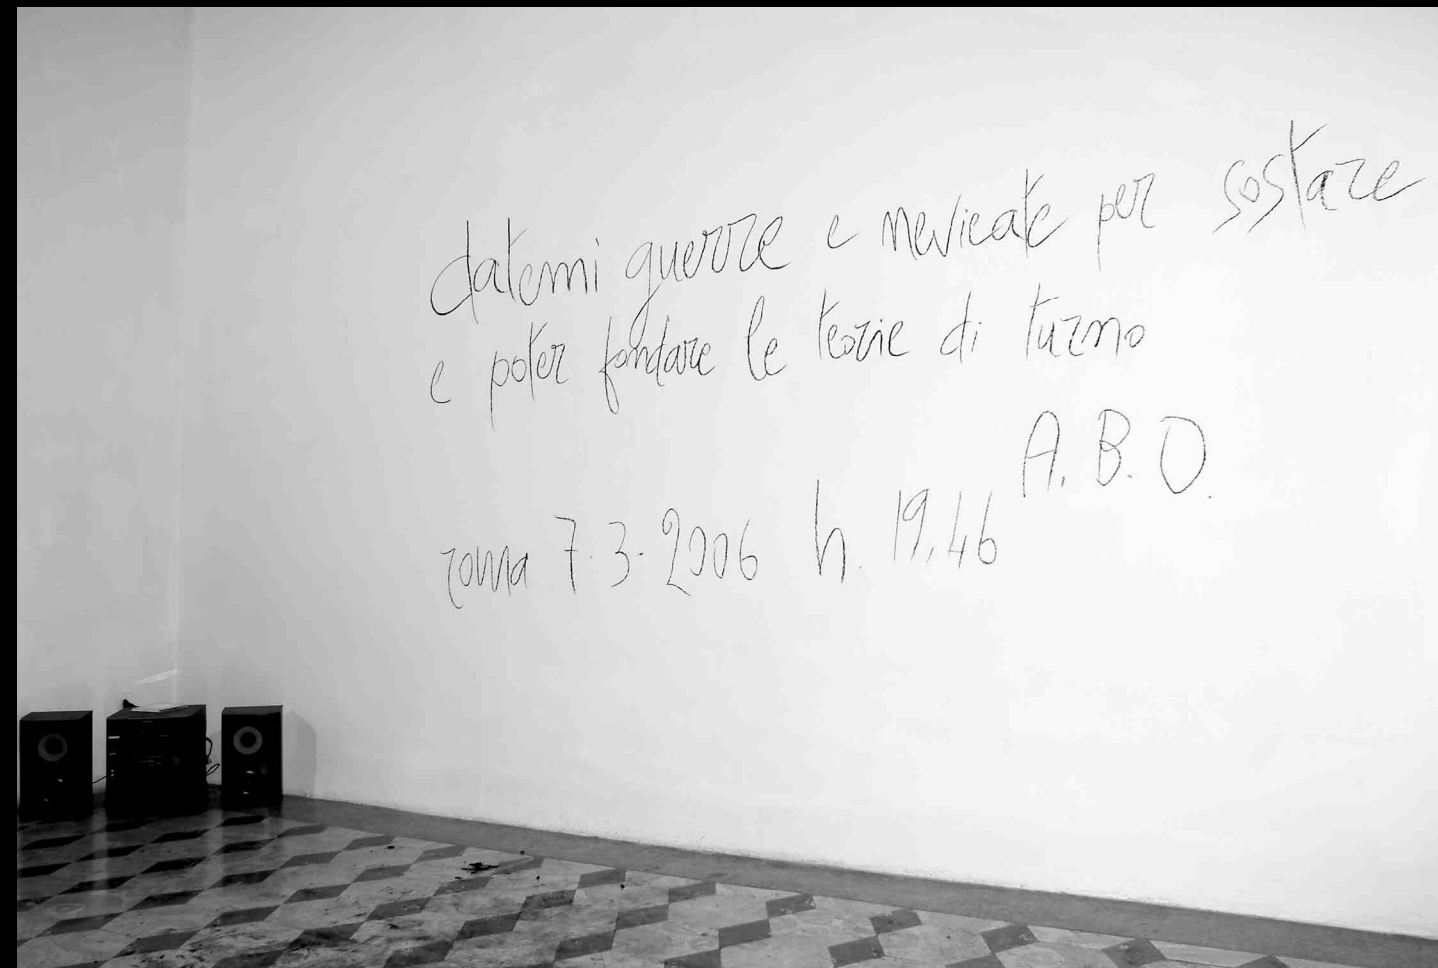 datemi guerre e nevicate per sostare
e poter fondare le teorie di turno
A. B. O.
roma 7.3.2006 h. 19,46